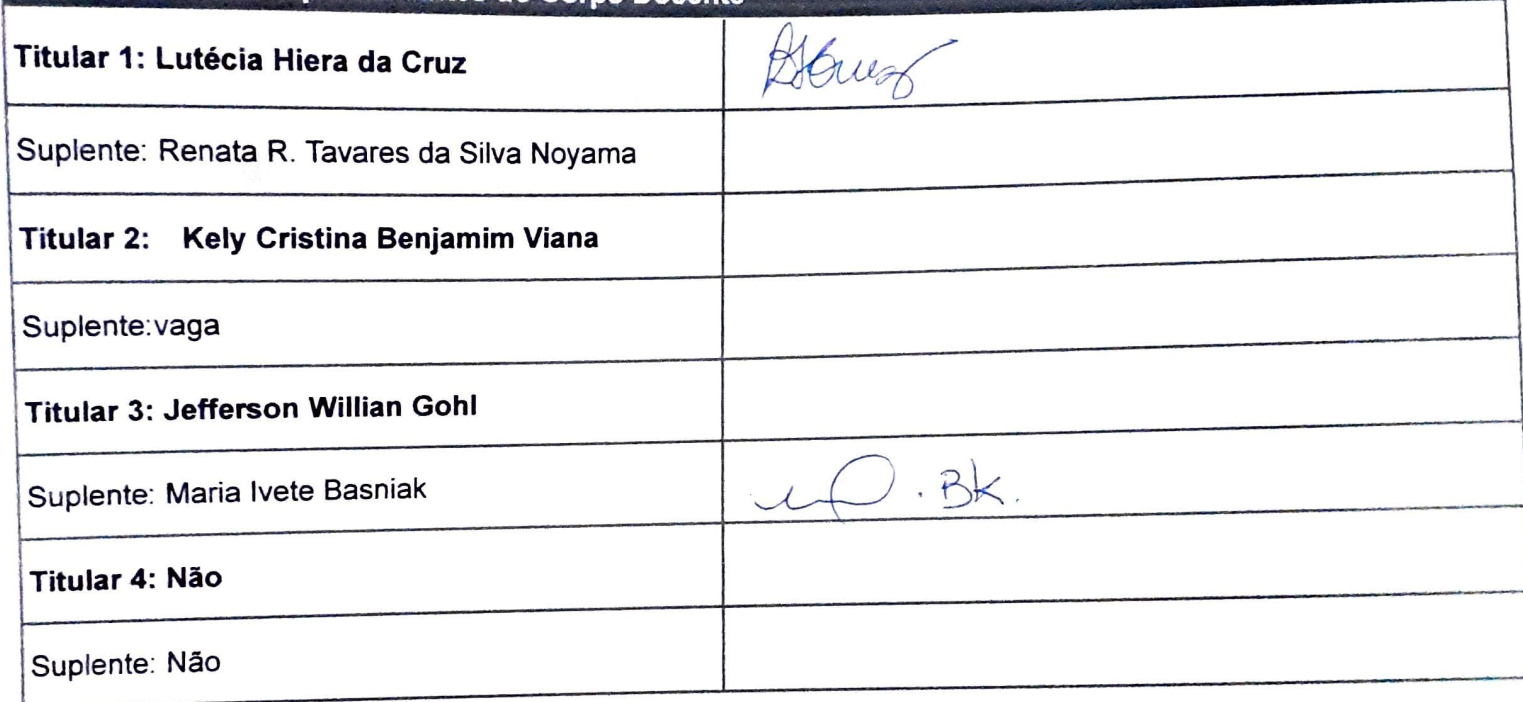 Corpo Docente
Titular 1: Lutécia Hiera da Cruz
Suplente: Renata R. Tavares da Silva Noyama
Titular 2: Kely Cristina Benjamim Viana
Suplente:vaga
Titular 3: Jefferson Willian Gohl
Suplente: Maria Ivete Basniak
. Bk.
Titular 4: Não
Suplente: Não